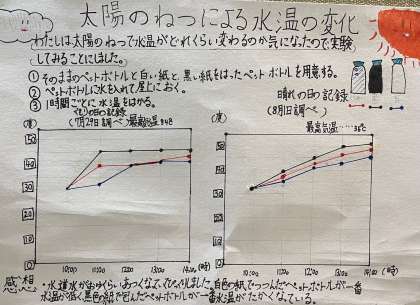 太陽のねつによる水温の変化
わたしは太陽のねつで水温がどれくらい変わるのか気になったので実験
してみることにしました。
①そのままのペットボトルと白い紙と、黒い紙をはったペットボトルを用意する。
②ペットボトルに水を入れて屋上におく。
③1時間ごとに水温をはかる。
くもりの日の記録
(7月29日調べ)最高気温
晴れの日の記録
(8月1日調べ)
最高気温……36℃
(度)
50
40
30
20
10
0
10:00 11:00 12:00 13:00 14:00 (時)
(度)
50
40
30
20
10
0
10:00 11:00 12:00 13:00 14:00 (時)
感想・水道水がおゆくらいあつくなってびっくりしました。白色の紙でつつんだペットボトルが一番
水温が低く、黒色の紙で包んだペットボトルが一番水温がたかくなている。